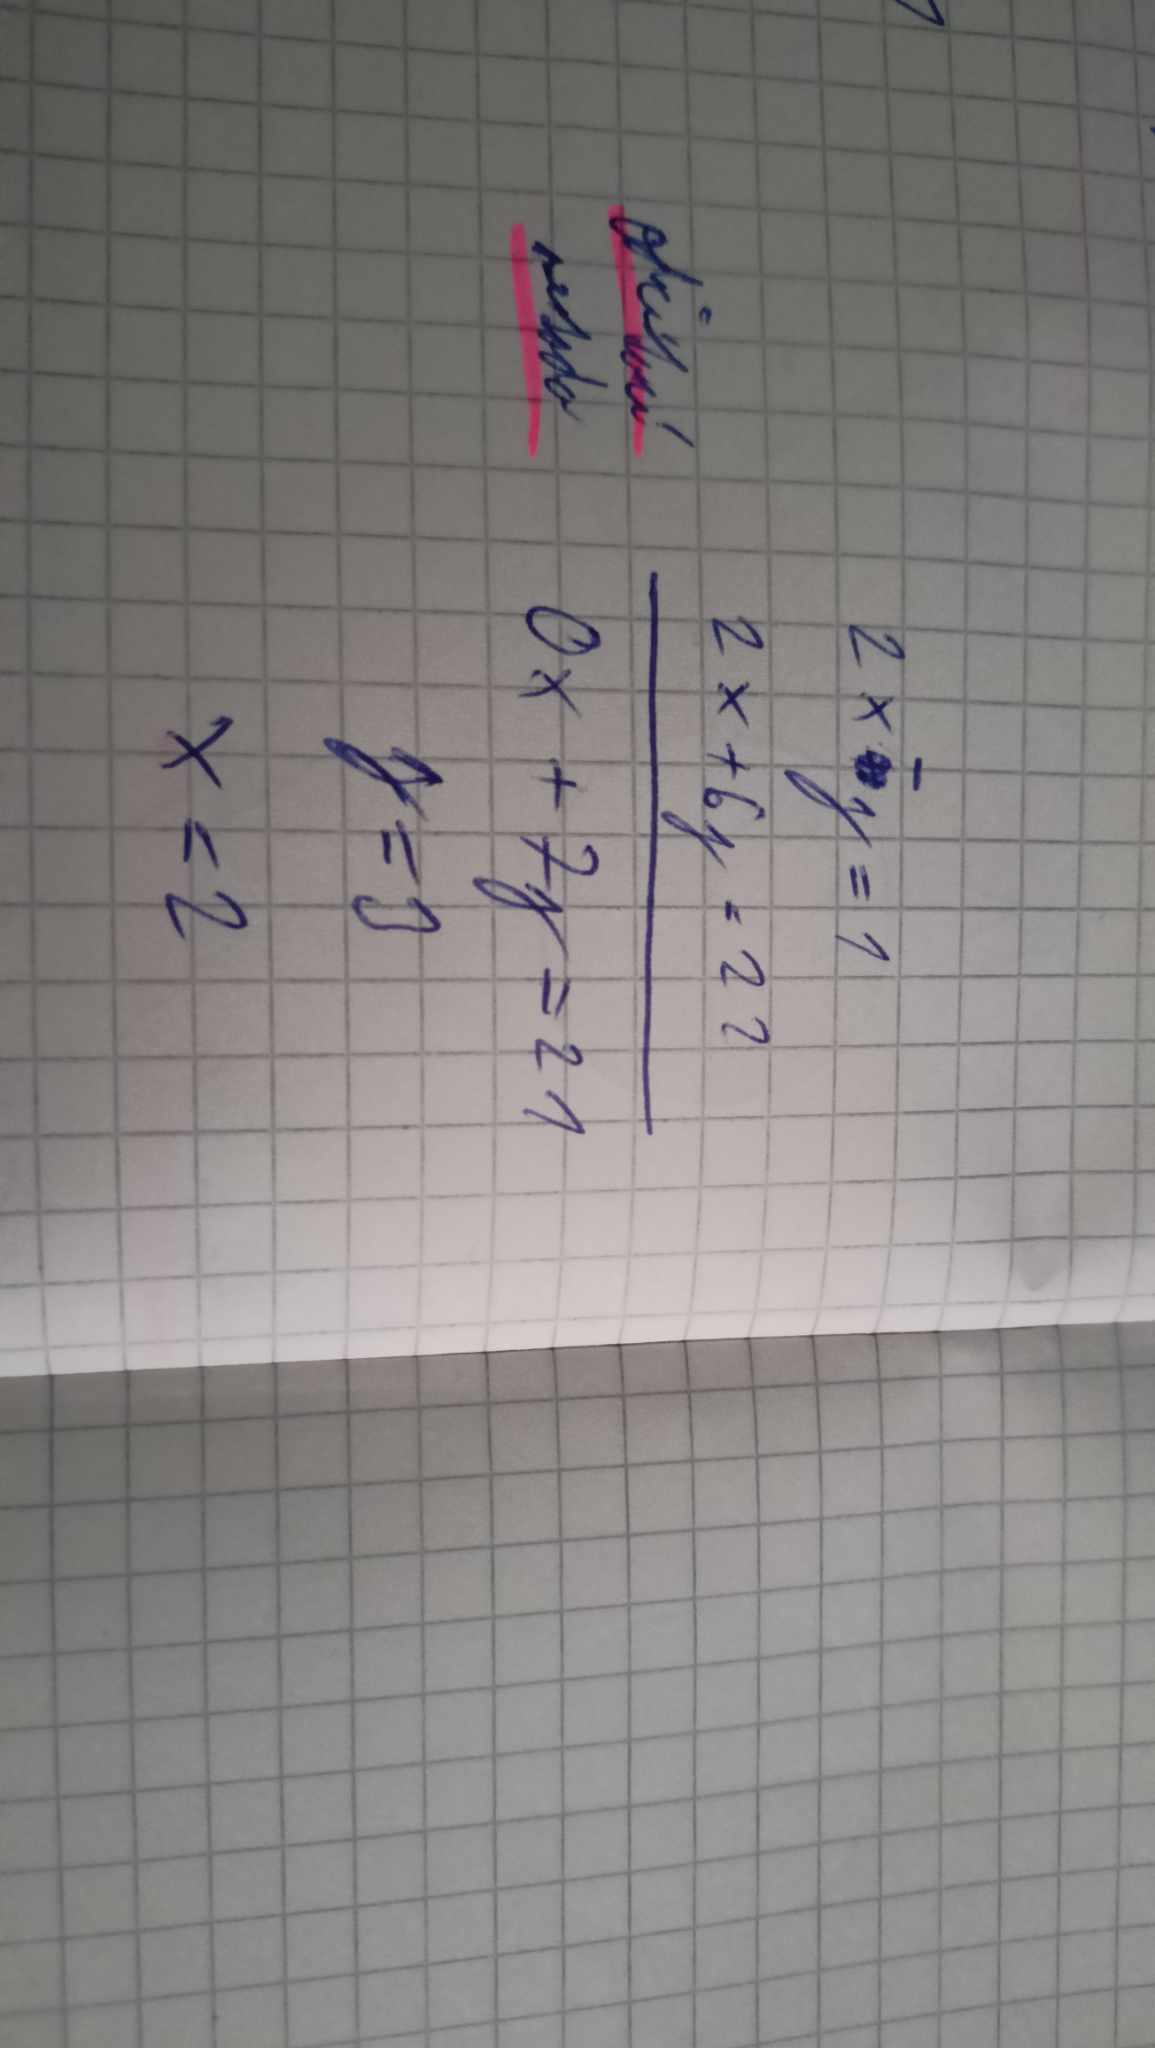 2x - y = 1
2x + 6y = 22
odčítací
metoda
0x + 7y = 21
y = 3
x = 2